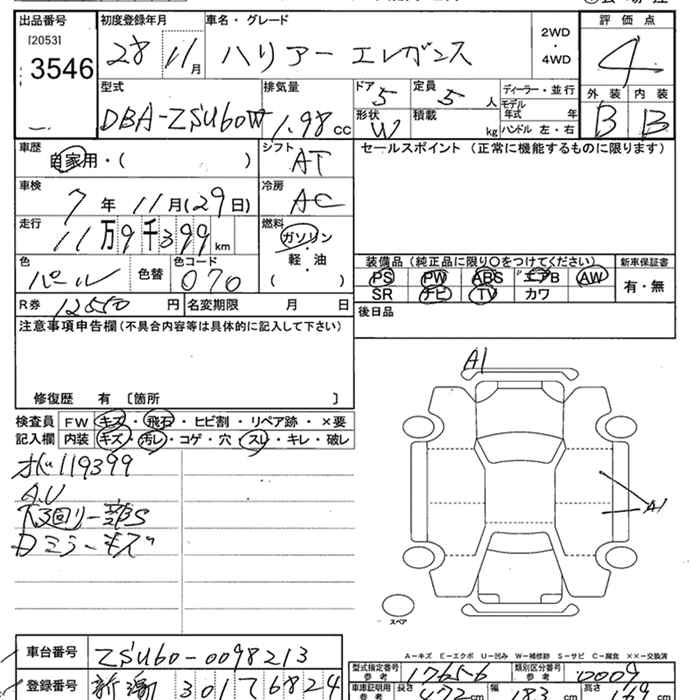 出品番号 初度登録年月 車名・グレード 評価点
[2053] 2WD
3546 28 11月 ハリアー エレガンス ・ 4
4WD
型式 排気量 ドア 5 定員 5人 ディーラー・並行 外装 内装
DBA-ZSU60W 1.98cc 形状 W 積載 kg モデル年式 年 B B
ハンドル 左・右
車歴 自家用・( ) シフト AT セールスポイント (正常に機能するものに限ります)
車検 7年 11月(29日) 冷房 AC
走行 11万9千399km 燃料 ガソリン
軽・油
( )
色 パール 色替 色コード 070
装備品(純正品に限り○をつけてください) 新車保証書
PS PW ABS エアB AW 有・無
SR ナビ TV カワ
R券 12550円 名変期限 月 日 後日品
注意事項申告欄(不具合内容等は具体的に記入して下さい)
修復歴 有 [箇所 ]
検査員 FW キズ・飛石・ヒビ割・リペア跡・×要
記入欄 内装 キズ・汚レ・コゲ・穴・スレ・キレ・破レ
オド119399
A.U
下回り一部S
Dミラーキズ
A1
A1
スペア
A-キズ E-エクボ U-凹み W-補修跡 S-サビ C-腐食 ××-交換済
車台番号 ZSU60-0098213
登録番号 新潟 301 て 6824
型式指定番号 参考 17656 類別区分番号 参考 0009
車庫証明用 参考 長さ 472cm 幅 183cm 高さ 169cm